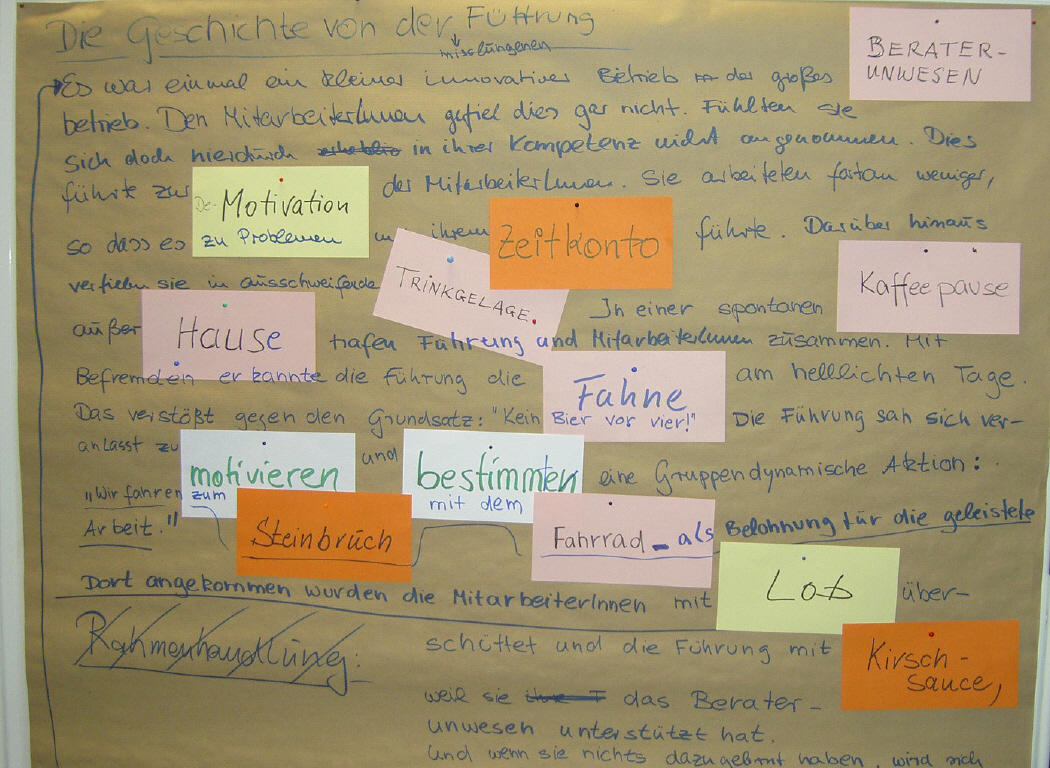 Die Geschichte von der Führung
misslungenen
BERATER-
UNWESEN
Es war einmal ein kleiner innovativer Betrieb der großes
betrieb. Den MitarbeiterInnen gefiel dies gar nicht. Fühlten sie
sich doch hierdurch in ihrer Kompetenz nicht angenommen. Dies
führte zur De-Motivation der MitarbeiterInnen. Sie arbeiteten fortan weniger,
so dass es zu Problemen in ihrem Zeitkonto führte. Darüber hinaus
verfielen sie in ausschweifende TRINKGELAGE. Kaffeepause
außer Hause In einer spontanen
trafen Führung und MitarbeiterInnen zusammen. Mit
Befremden erkannte die Führung die Fahne am helllichten Tage.
Das verstößt gegen den Grundsatz: "Kein Bier vor vier!" Die Führung sah sich ver-
anlasst zu motivieren und bestimmten eine Gruppendynamische Aktion:
"Wir fahren zum Steinbruch mit dem Fahrrad - als Belohnung für die geleistete
Arbeit."
Dort angekommen wurden die MitarbeiterInnen mit Lob über-
Rahmenhandlung:
schüttet und die Führung mit Kirsch-
sauce,
weil sie das Berater-
unwesen unterstützt hat.
Und wenn sie nichts dazugelernt haben, wird sich